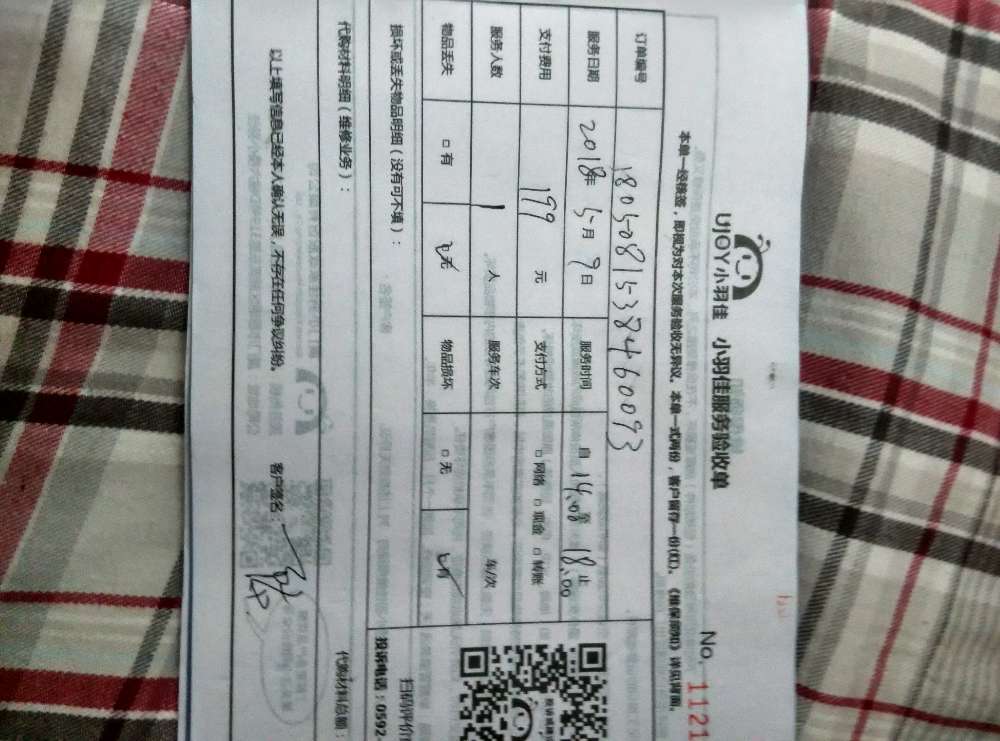 UJOY小羽佳 小羽佳服务验收单
No. 1121
本单一经核签，即视为对本次服务验收无异议。本单一式两份，客户留存一份(红)。《维保须知》详见背面。
订单编号 1805081538460093
服务日期 2018年5月9日 服务时间 自14:00至18:00止
支付费用 199 元 支付方式 □网络 □现金 □转账
服务人数 1 人 服务车次 车/次
物品丢失 □有 ☑无 物品损坏 □无 ☑有
损坏或丢失物品明细（没有可不填）：
扫码评价
投诉电话：0592-
代购材料明细（维修业务）：
代购材料总额：
以上填写信息已经本人确认无误，不存在任何争议纠纷。 客户签名：